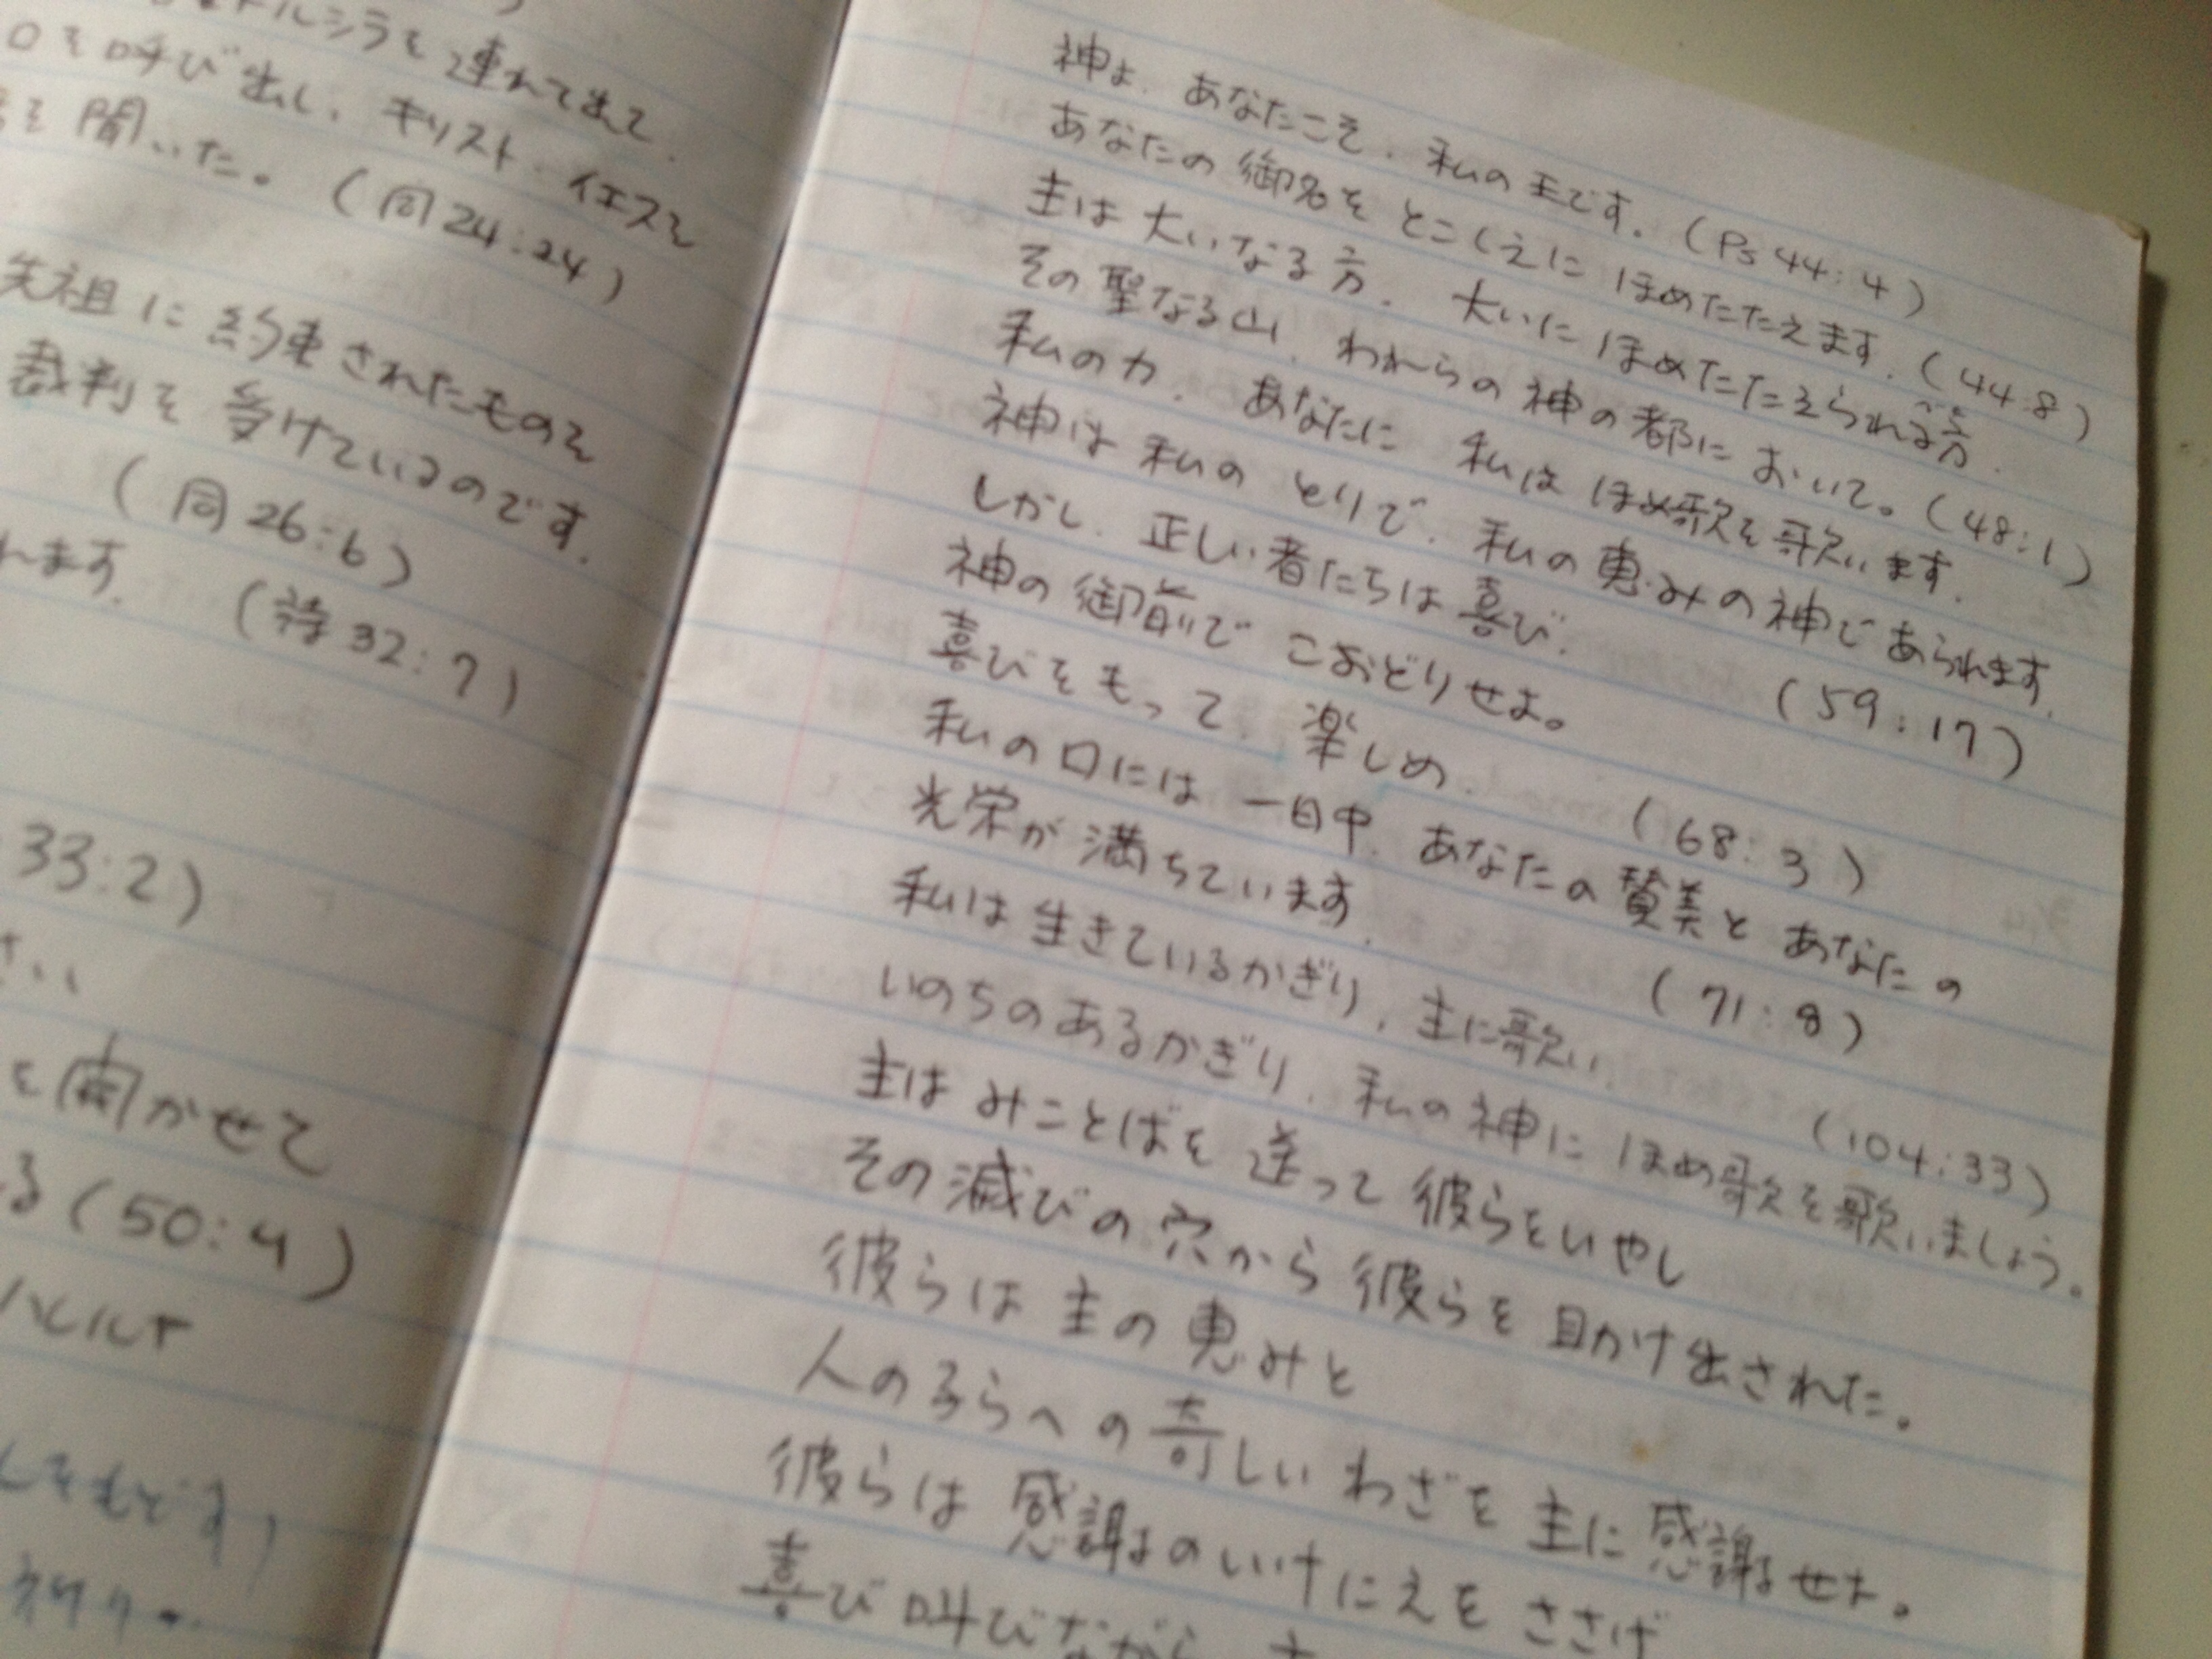 ドルシラを連れて出て、
ロを呼び出し、キリスト・イエスを
を聞いた。(同24:24)
先祖に約束されたものを
裁判を受けているのです。
(同26:6)
れます。(詩32:7)
33:2)
さい
を開かせて
る(50:4)
ハレルヤ
神よ、あなたこそ、私の王です。(Ps44:4)
あなたの御名をとこしえにほめたたえます。(44:8)
主は大いなる方、大いにほめたたえられる方。
その聖なる山、われらの神の都において。(48:1)
私の力、あなたに私はほめ歌を歌います。
神は私のとりで、私の恵みの神であられます。
(59:17)
しかし、正しい者たちは喜び、
神の御前でこおどりせよ。
喜びをもって楽しめ。(68:3)
私の口には一日中、あなたの賛美とあなたの
光栄が満ちています。(71:8)
私は生きているかぎり、主に歌い、
(104:33)
いのちのあるかぎり、私の神にほめ歌を歌いましょう。
主はみことばを送って彼らをいやし
その滅びの穴から彼らを助け出された。
彼らは主の恵みと
人の子らへの奇しいわざを主に感謝せよ。
彼らは感謝のいけにえをささげ
喜び叫びながら